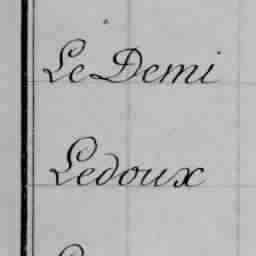 Le Demi
Ledoux